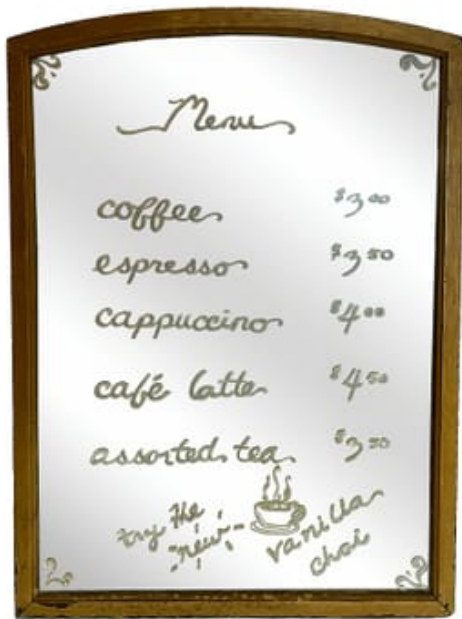 Menu
coffee $3.00
espresso $3.50
cappuccino $4.00
café latte $4.50
assorted tea $3.50
try the "new" vanilla chai